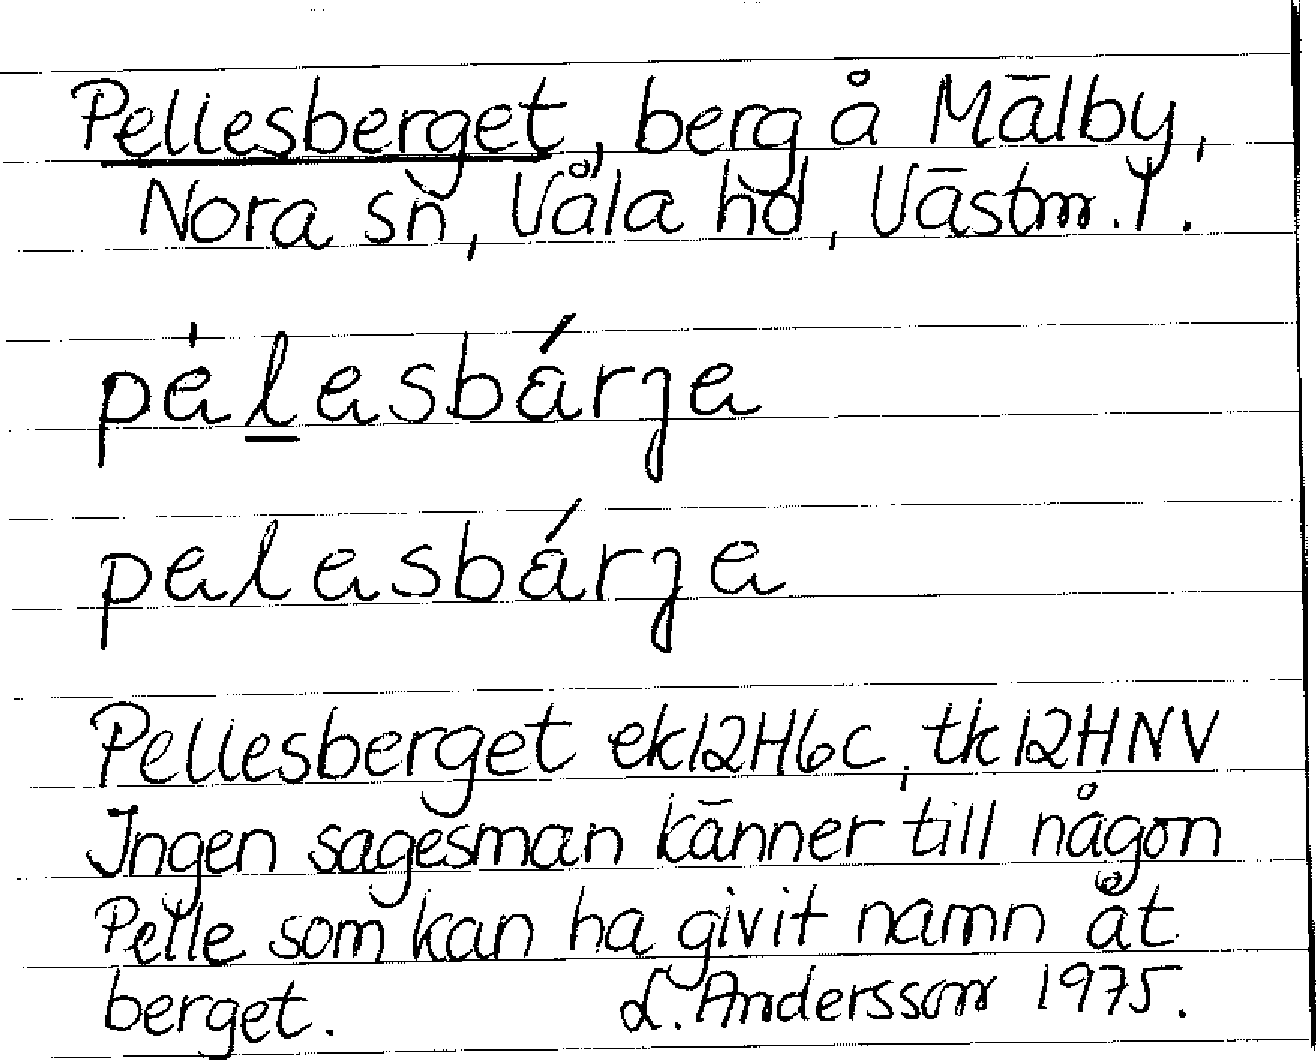 Pellesberget, berg å Mälby,
Nora sn, Våla hd, Västm. l.
pèlesbárje
pelesbárje
Pellesberget ek12H6c, tk12HNV
Ingen sagesman känner till någon
Pelle som kan ha givit namn åt
berget. L. Andersson 1975.